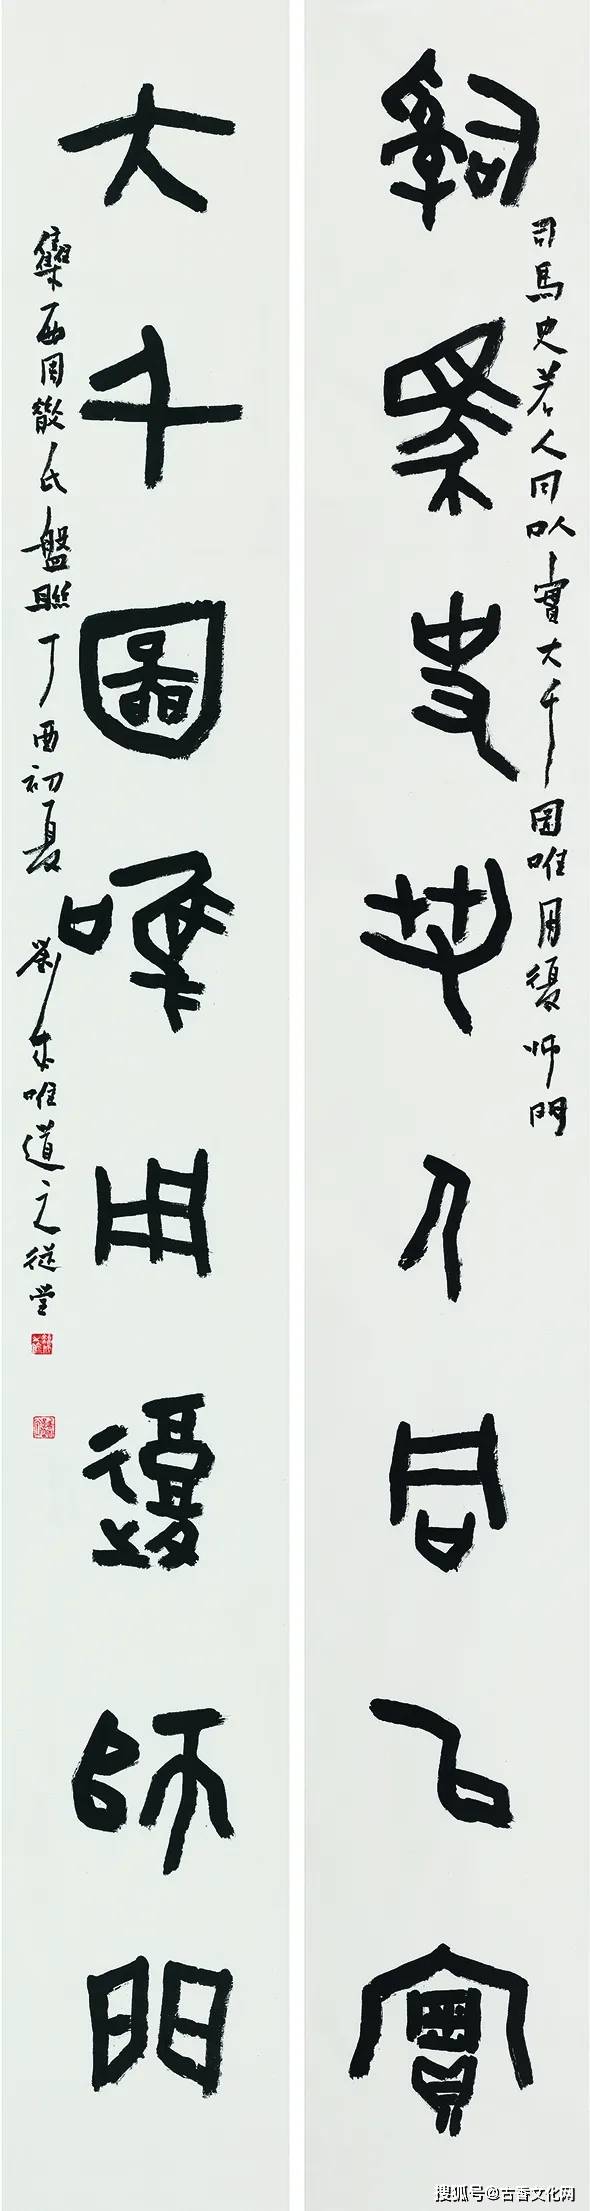 司馬史若人同以實大千圖唯用復師門
司馬史若人同以實
大千圖唯用復師門
集西周散氏盤聯丁酉初夏 唯道之從堂
搜狐号@古香文化网